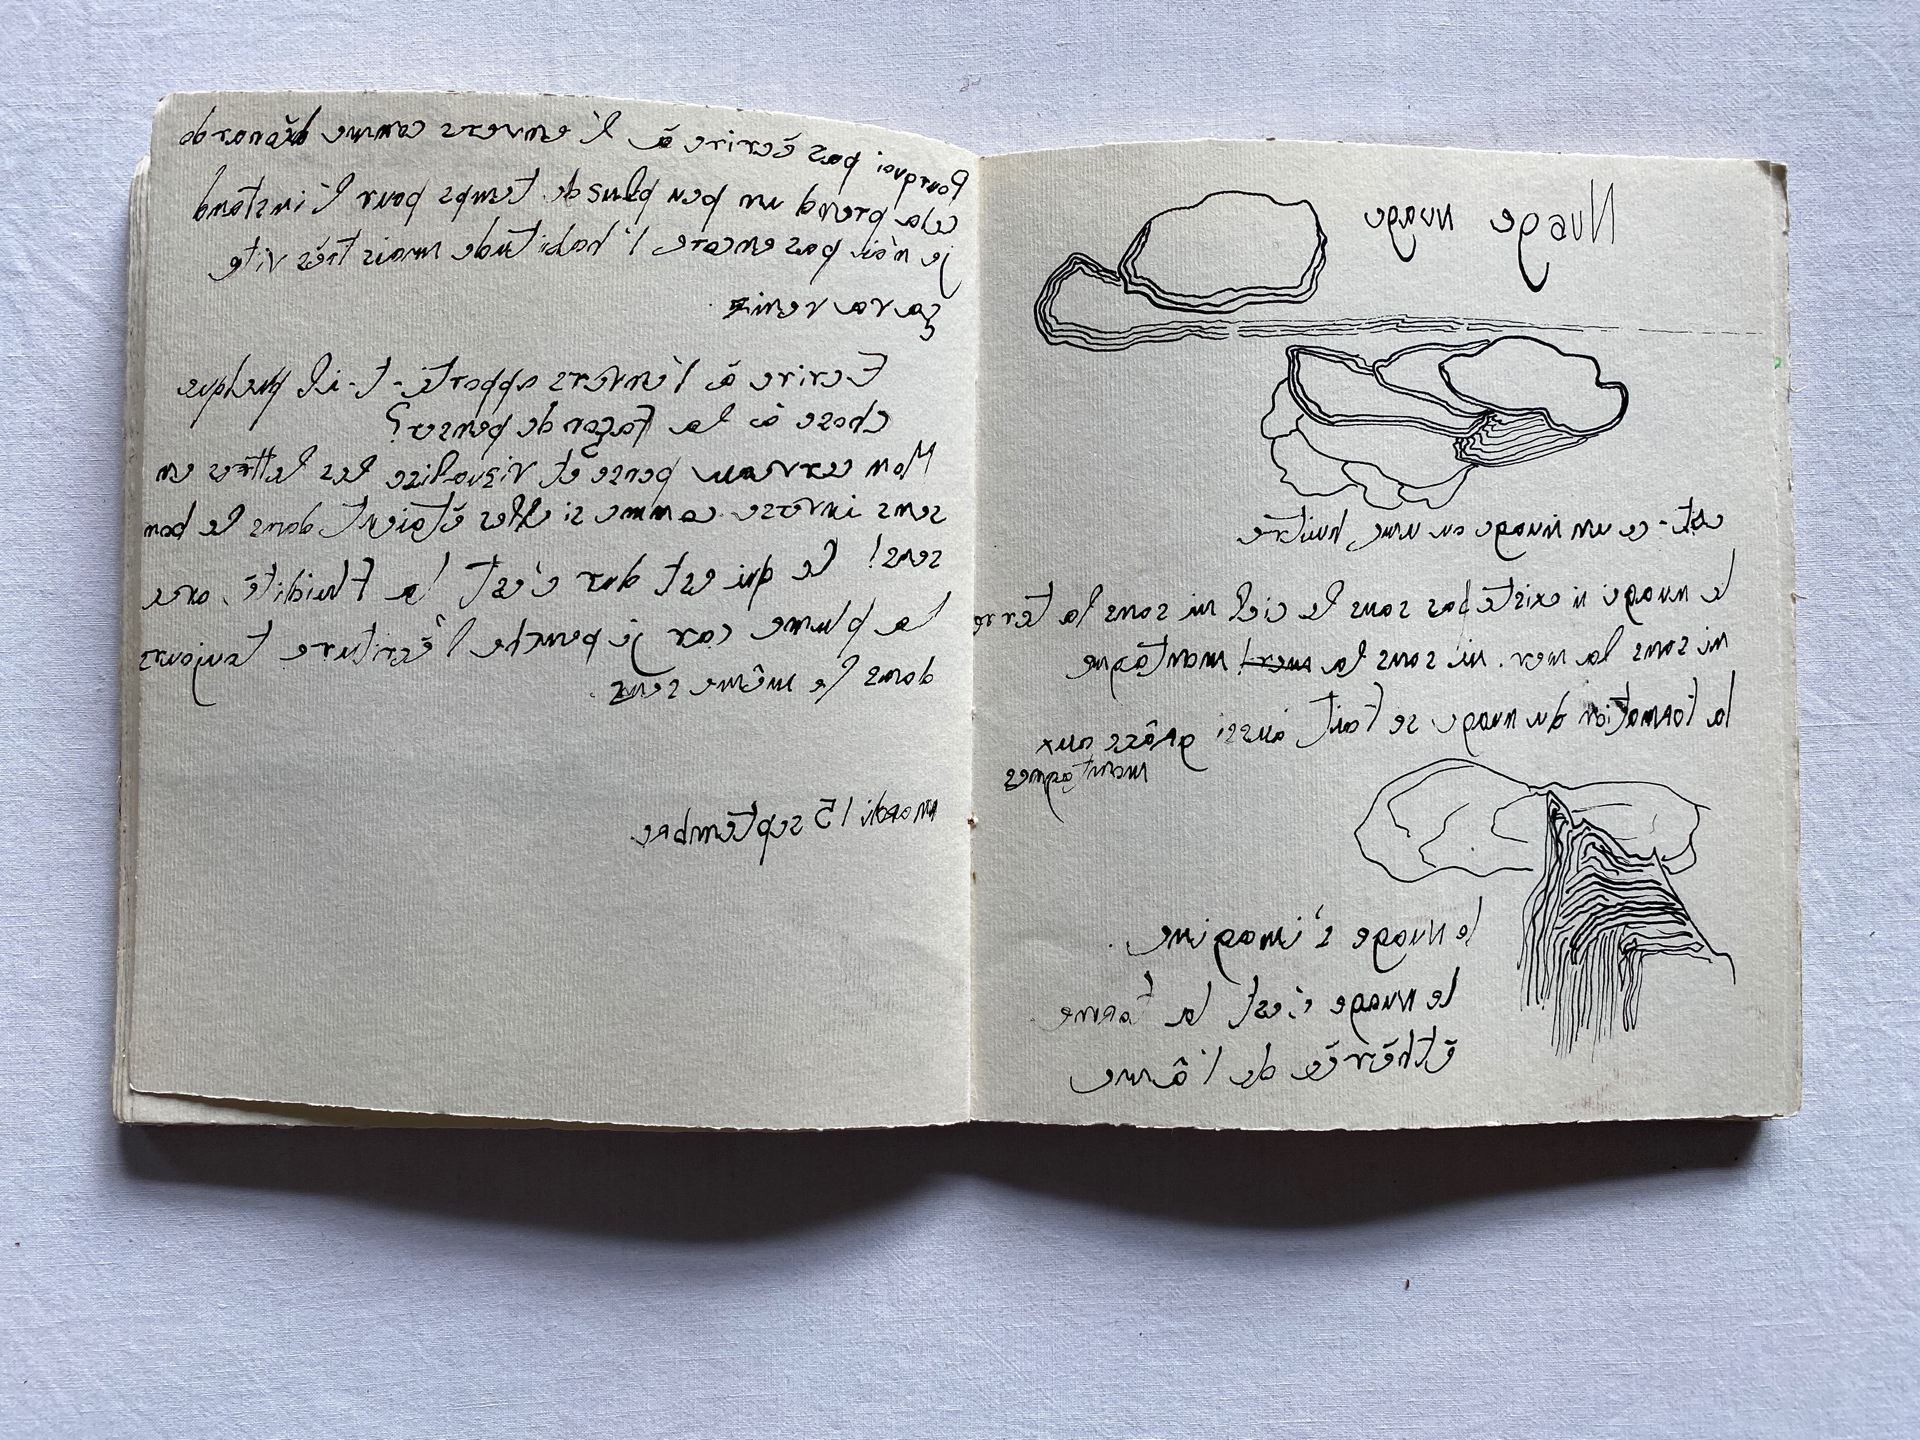 Pourquoi pas écrire à l'envers comme Léonardo
cela prend un peu plus de temps pour l'instand
je n'ai pas encore l'habitude mais très vite
ça va venir.
Ecrire à l'envers apporte-t-il quelque
chose à la façon de penser?
Mon cerveau pense et visualise les lettres en
sens inverse comme si elles étaient dans le bon
sens! Ce qui est dur c'est la fluidité, avec
la plume car je penche l'écriture toujours
dans le même sens.
mardi 15 septembre.
Nuage nuage
est-ce un nuage ou une huitre
Le nuage n'existe pas sans le ciel ni sans la terre
ni sans la mer. ni sans la mer! montagne
la formation du nuage se fait aussi grâce aux
montagnes
le nuage s'imagine.
le nuage c'est la forme
éthérée de l'âme